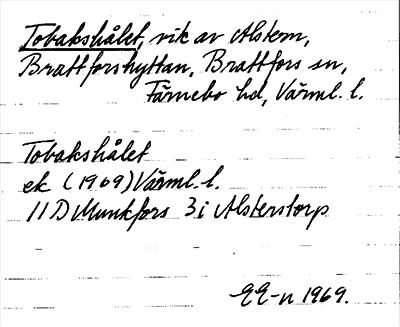 Tobakshålet, vik av Alstern,
Brattforshyttan, Brattfors sn,
Färnebo hd, Värml. l.
Tobakshålet
ek (1969) Värml. l.
11 D Munkfors 3 i Alsterstorp
EE-n 1969.